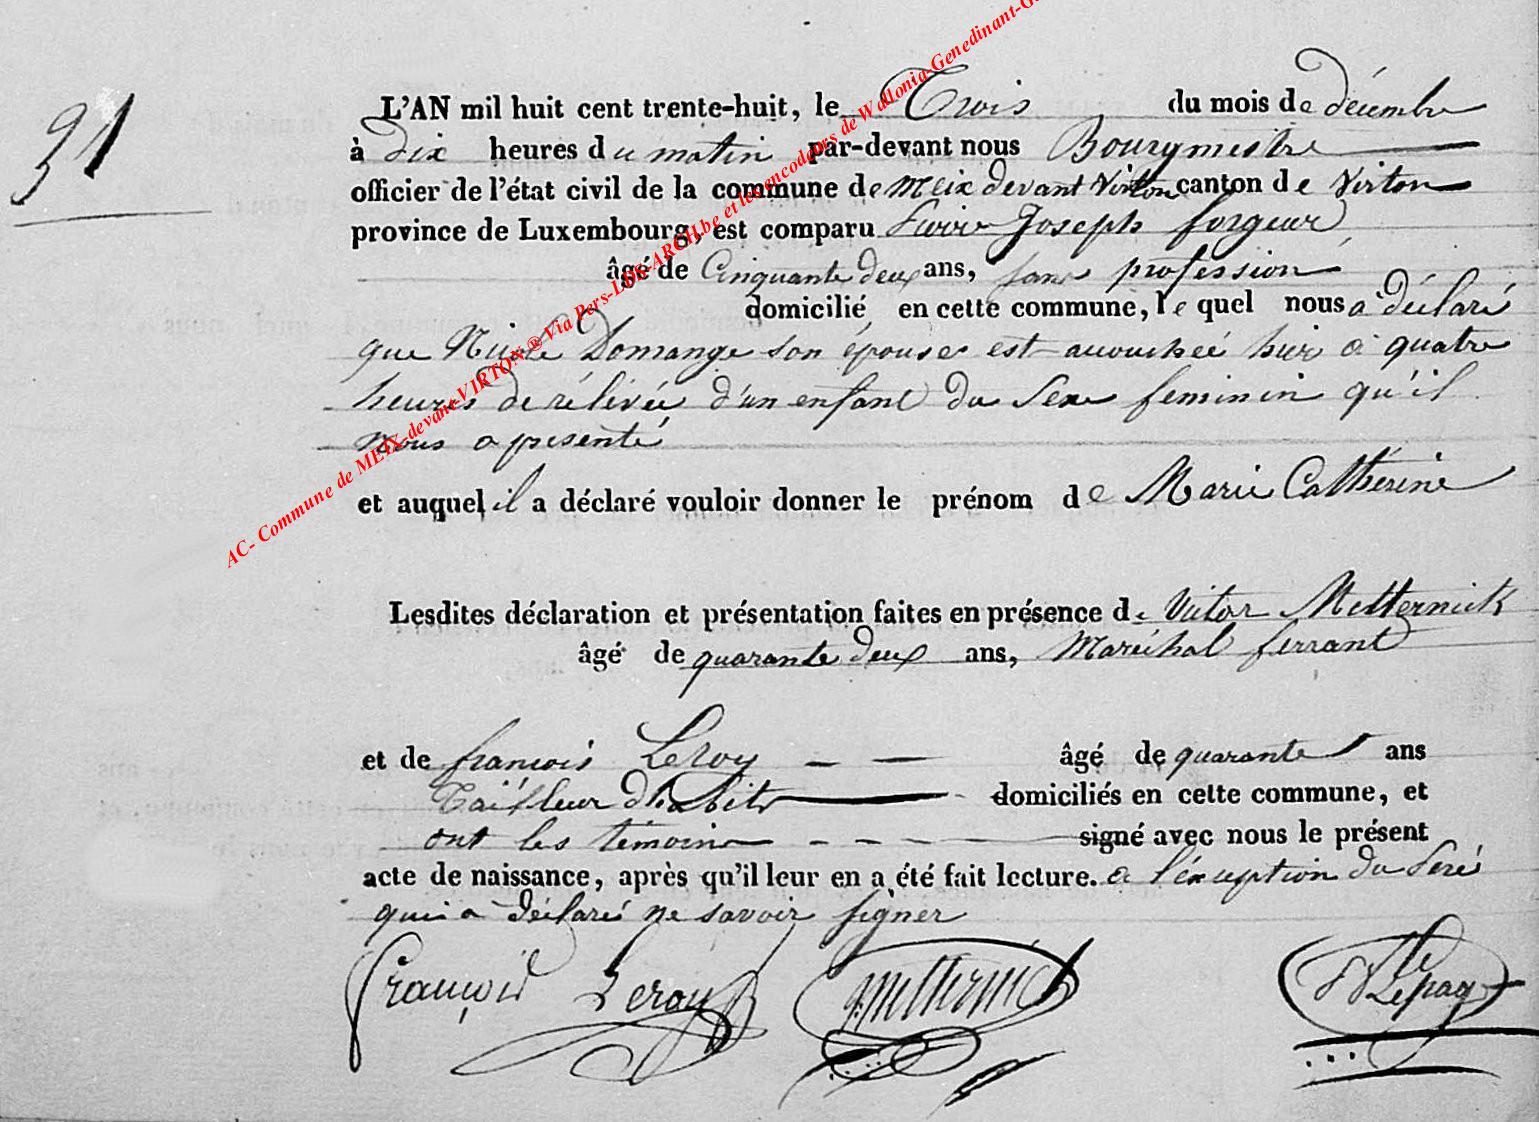 31
L'AN mil huit cent trente-huit, le Trois du mois de décembre
à dix heures du matin par-devant nous Bourgmestre
officier de l'état civil de la commune de Meix devant Virton canton de Virton
province de Luxembourg, est comparu Pierre Joseph forgeur
âgé de Cinquante deux ans, sans profession
domicilié en cette commune, le quel nous a déclaré
que Nicole Domange son épouse est accouchée hier à quatre
heures de rélévée d'un enfant du Sexe feminin qu'il
nous a présenté
et auquel il a déclaré vouloir donner le prénom de Marie Cathérine
Lesdites déclaration et présentation faites en présence de Victor Metternick
âgé de quarante deux ans, Maréchal ferrant
et de francois Leroy âgé de quarante ans
Tailleur d'habits domiciliés en cette commune, et
ont les témoins signé avec nous le présent
acte de naissance, après qu'il leur en a été fait lecture. a l'éxception du Peré
qui a déclaré ne savoir signer
François Leroy Metternick Lepage
AC- Commune de MEIX-devant-VIRTON ® Via Pers-LUX-ARCH.be et les encodeurs de Wallonia-Genedinant-G